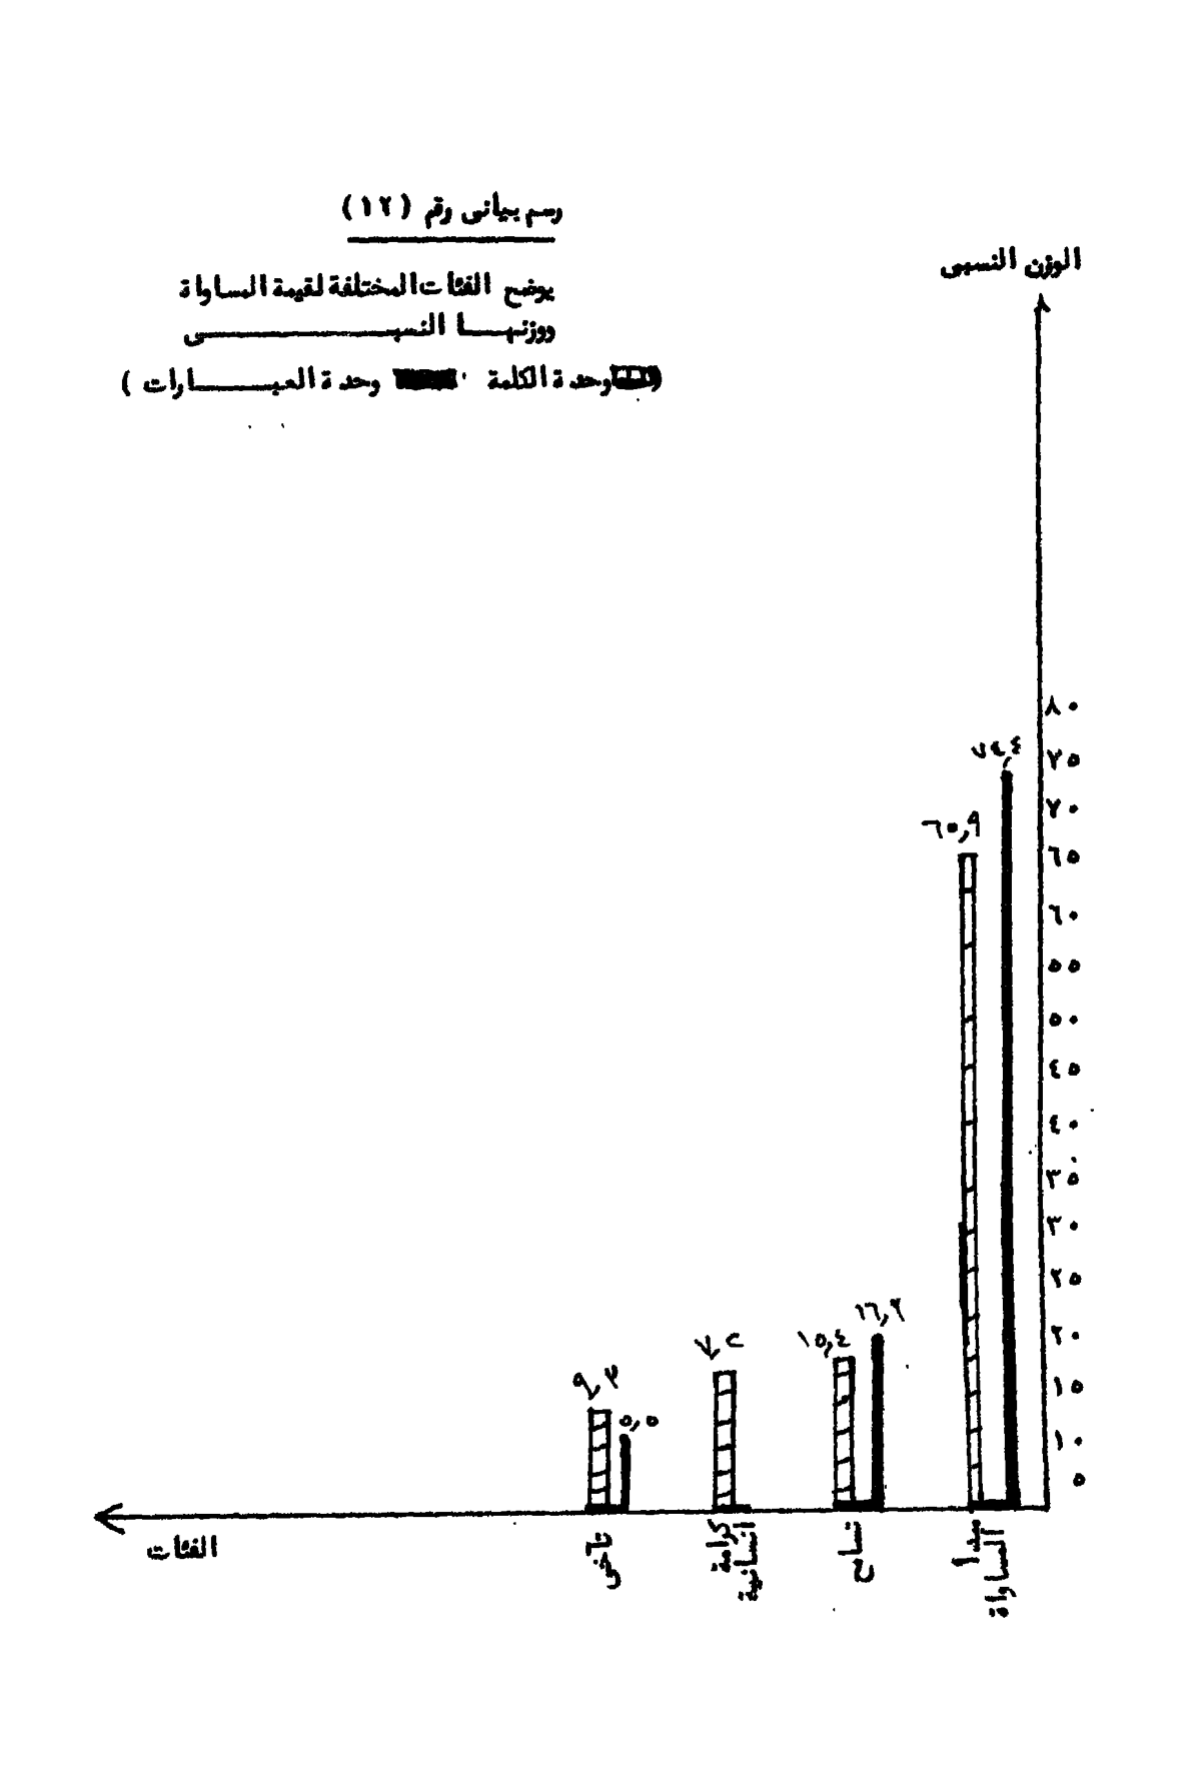 رسم بيانى رقم (١٢)
يوضح الفئات المختلفة لقيمة المساواة
ووزنها النسبى
(وحدة الكلمة وحدة العبارات)
الوزن النسبى
٨٠
٧٥
٧٠
٦٥
٦٠
٥٥
٥٠
٤٥
٤٠
٣٥
٣٠
٢٥
٢٠
١٥
١٠
٥
٦٥,٩
١٥,٤
٩,٣
٥,٥
مبدأ المساواة
تسامح
كرامة انسانية
تآخى
الفئات